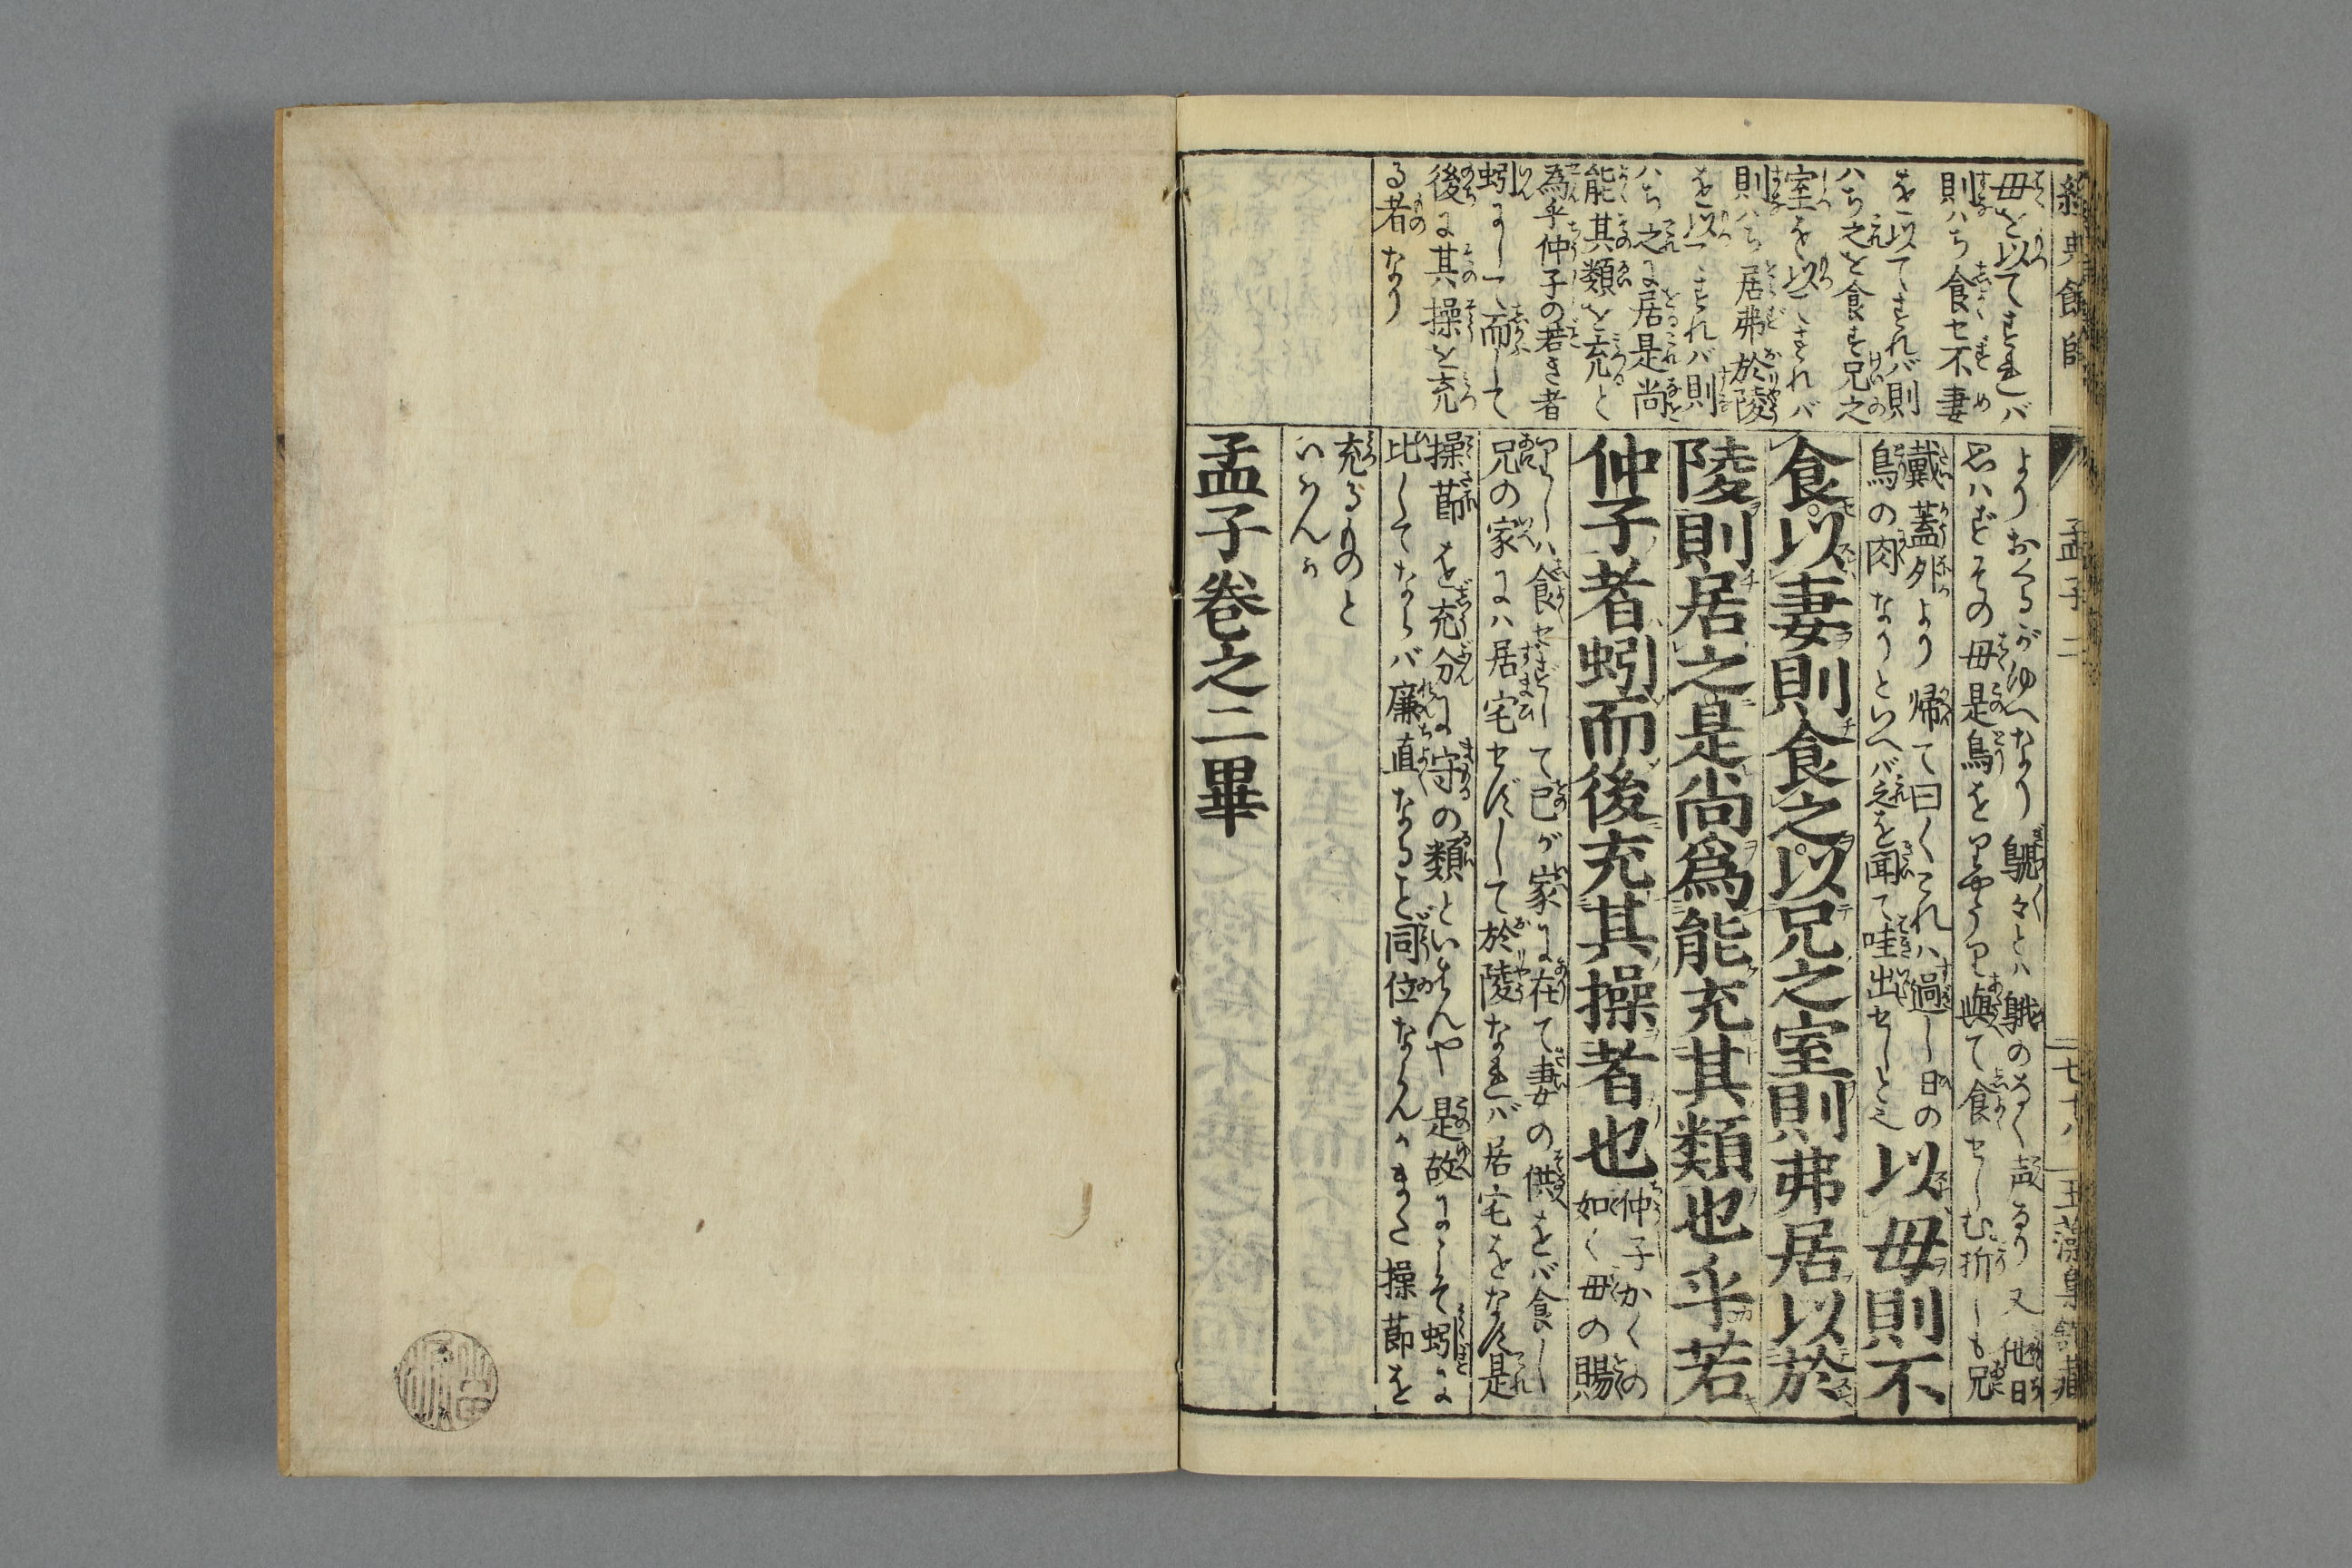 経典餘師
孟子二
七十八
玉藻皐舘蔵
母を以てすれバ
則ハち食セ不妻
を以てすれバ則
ハち之を食す兄之
室を以てすれバ
則ハち居弗於陵
を以てすれバ則
ハち之に居是尚
能其類を充と
為乎仲子の若き者
蚓にして而して
後に其操を充
る者なり
よりおくるがゆへなり鶃々とハ鵝のなく声なり又他日
戴蓋外より帰て曰くこれハ過し日の
鳥の肉なりといへバ之を聞て哇出セしと之
以母則不
食以妻則食之以兄之室則弗居以於
陵則居之是尚爲能充其類也乎若
仲子者蚓而後充其操者也
仲子かくの
如く母の賜
兄の家にハ居宅セずして於陵なれバ居宅をなす是
操莭を充分に守の類といはんや是故にこそ蚓に
比してならバ廉直なること同位ならんまた操莭を
充るものと
いはんか
孟子巻之二畢